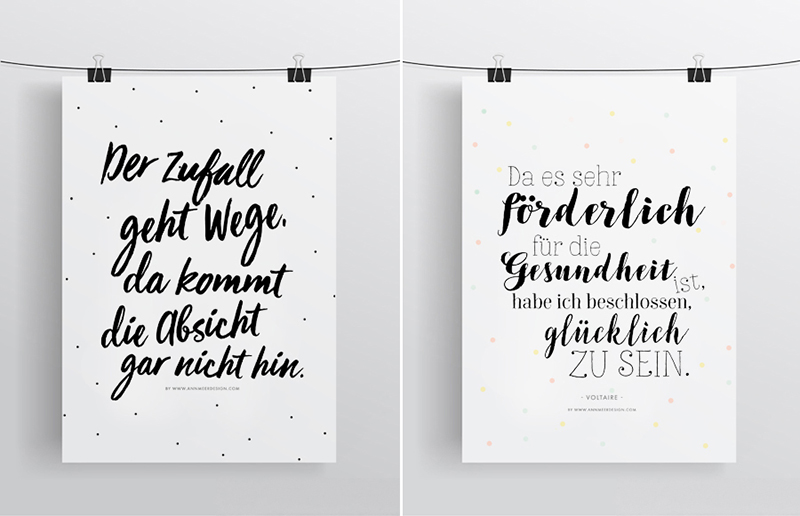 Der Zufall
geht Wege,
da kommt
die Absicht
gar nicht hin.
BY WWW.ANNMEERDESIGN.COM
Da es sehr
förderlich
für die
Gesundheit
ist,
habe ich beschlossen,
glücklich
ZU SEIN.
- VOLTAIRE -
BY WWW.ANNMEERDESIGN.COM